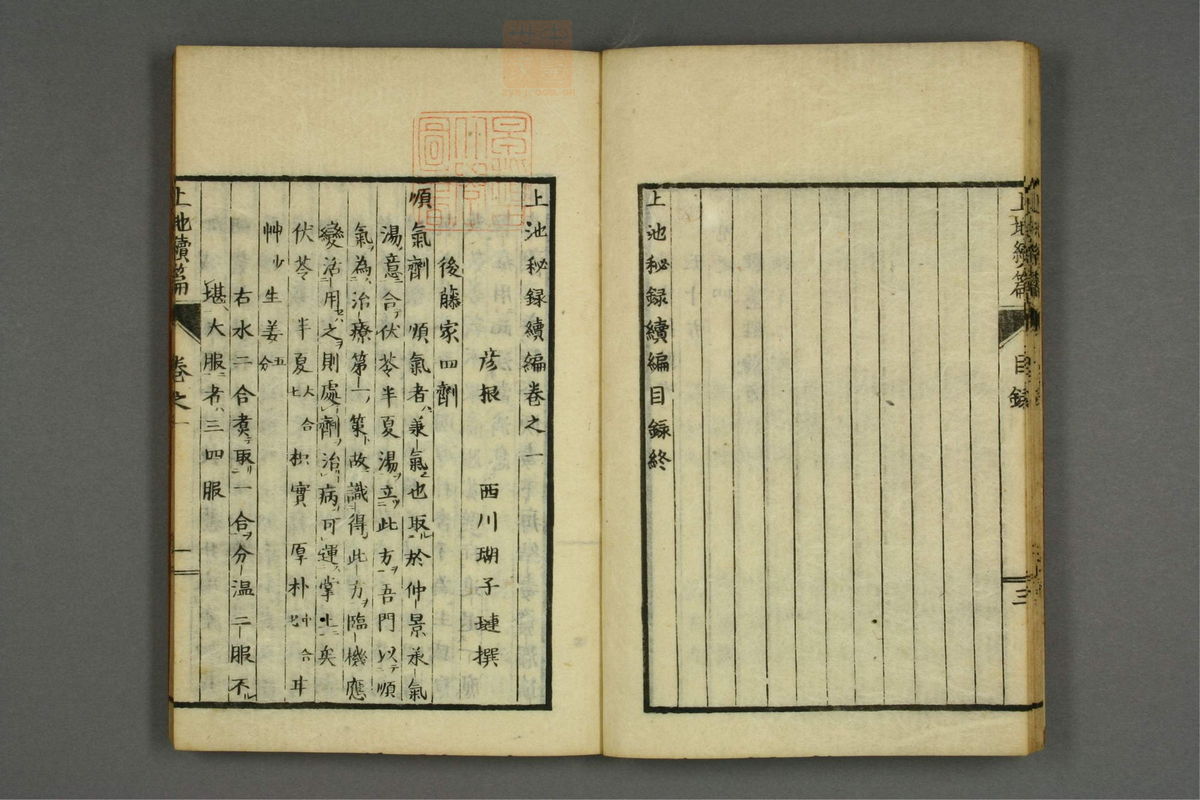 上池秘録續編目録終
上池續篇
目録
三
上池秘録續編巻之一
彦根 西川瑚子璉撰
後藤家四劑
順氣劑 順氣者兼氣也取於仲景承氣
湯意合伏苓半夏湯立此方吾門以順
氣為治療第一策故識得此方臨機應
變活用之則處劑治病可運掌上矣
伏苓 半夏大合 枳實 厚朴中合 耳
艸少 生姜五分
右水二合煮取一合分温二服不
堪大服者三四服
上池續篇
巻之一
一